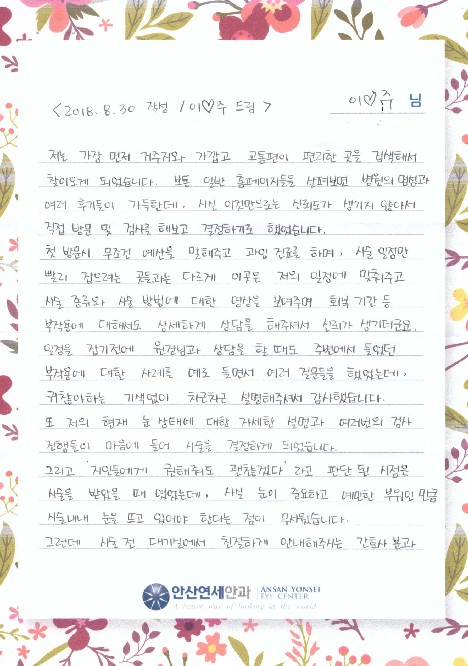 이♡주 님
< 2018. 8. 30 작성 / 이♡주 드림 >
저는 가장 먼저 거주지와 가깝고 교통편이 편리한 곳을 검색해서
찾아오게 되었습니다. 보통 일반 홈페이지들을 살펴보면 병원의 명성과
여러 후기들이 가득한데, 사실 이것만으로는 신뢰도가 생기지 않아서
직접 방문 및 검사를 해보고 결정하기로 했었습니다.
첫 방문시 무조건 예산을 말해주고 과잉 진료를 하며, 시술 일정만
빨리 잡으려는 곳들과는 다르게 이곳은 저의 일정에 맞춰주고
시술 종류와 시술 방법에 대한 영상을 보여주며 회복 기간 등
부작용에 대해서도 상세하게 상담을 해주셔서 신뢰가 생기더군요.
일정을 잡기전에 원장님과 상담을 할 때도 주변에서 들었던
부작용에 대한 사례를 예로 들면서 여러 질문들을 했었는데,
귀찮아하는 기색없이 차근차근 설명해주셔서 감사했습니다.
또 저의 현재 눈 상태에 대한 자세한 설명과 여러번의 검사
진행들이 마음에 들어 시술을 결정하게 되었습니다.
그리고 '지인들에게 권해줘도 괜찮겠다' 라고 판단 된 시점은
시술을 받았을 때 였었는데, 사실 눈이 중요하고 예민한 부위인 만큼
시술내내 눈을 뜨고 있어야 한다는 점이 무서웠습니다.
그런데 시술 전 대기실에서 친절하게 안내해주시는 간호사 분과
안산연세안과 ANSAN YONSEI
EYE CENTER
A better way of looking at the world